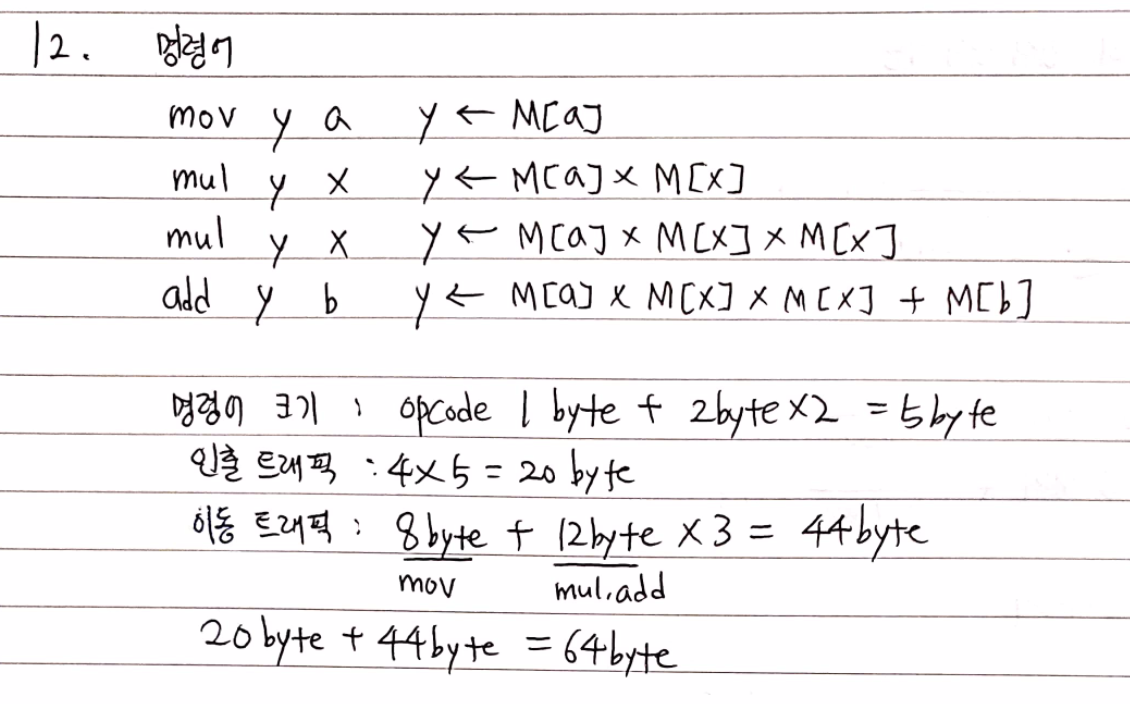 12. 명령어
mov y a y ← M[a]
mul y x y ← M[a] × M[x]
mul y x y ← M[a] × M[x] × M[x]
add y b y ← M[a] × M[x] × M[x] + M[b]
명령어 크기 : opcode 1 byte + 2byte×2 = 5byte
인출 트래픽 : 4×5 = 20 byte
이동 트래픽 : 8byte + 12byte × 3 = 44byte
mov mul,add
20byte + 44byte = 64byte